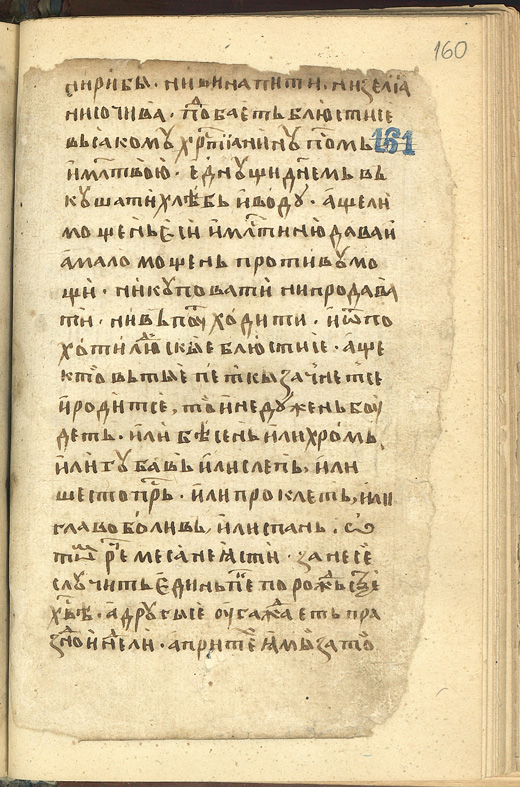 160
ни рибы · ни вина пити · ни зелїа
ни сочива · пⷣобаеть блюстисе
вьсакомꙋ хрⷭтїанинꙋ помь
161
и млⷭтвою · еднꙋщи днемь вь
кꙋшати хлѣбь и водꙋ · аще ли
мощень еси и млⷭтиню даваи
а мало мощень противꙋ мо
щи · ни кꙋповати ни продава
ти · ни вь поу ходити · и ѿ по
хоти людскые блюстисе · аще
кто вь тые петкы зачнетсе
и родитсе, то и недꙋжень боу
деть · или бѣсень или хромь,
или гꙋбавь или слепь, или
шестопрь · или проклеть, или
главоболивь, или спань ·
за несе
слꙋчить единь по рожⷣьст
хв҃ѣ · а дрꙋгые оугажⷣаеть пра
зно и нели · а при тѣ за то